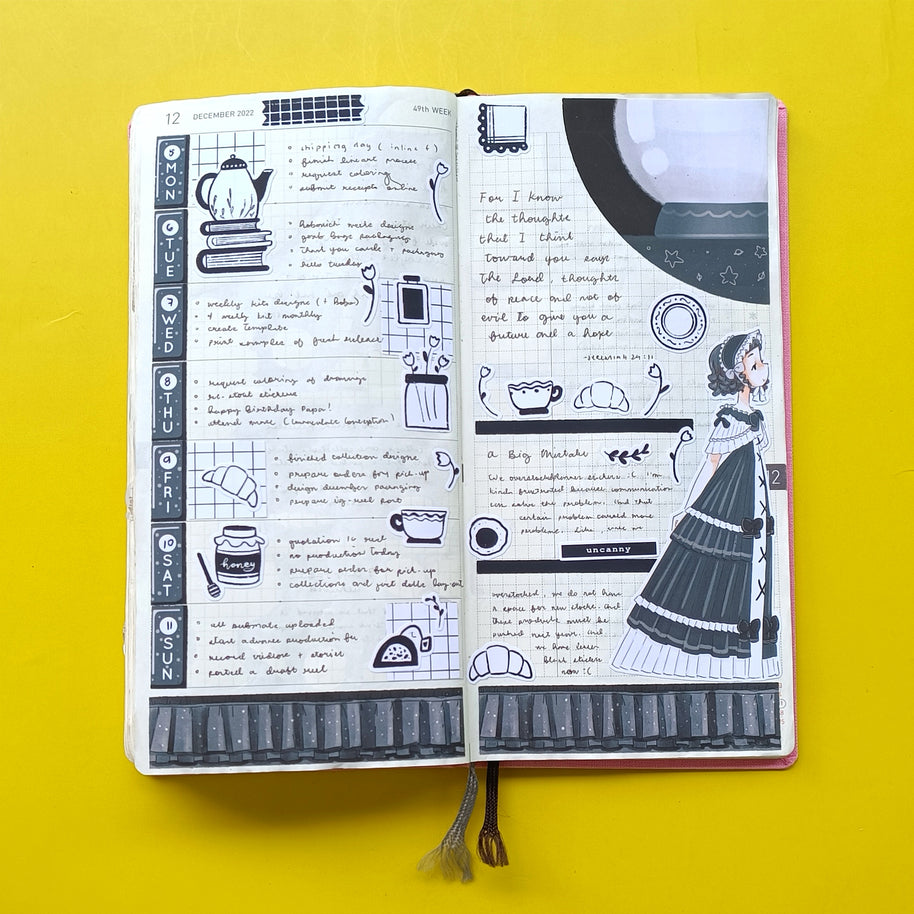 12 DECEMBER 2022 49th WEEK
5 MON
shipping day ( inline 4 )
finish lineart process
request coloring
submit receipts online
6 TUE
goat bags packaging
Thank you cards + packaging
hello tuesday
7 WED
weekly kits designs (+ Hobo)
4 weekly kit monthly
create template
print samples of great release
8 THU
request coloring of drawings
re-stock stickers
happy birthday Papa!
attend mass ( Immaculate Conception )
9 FRI
finished collection designs
prepare orders for pick-up
design december packaging
prepare ig-reel post
10 SAT
honey
quotation ig reel
no production today
prepare order for pick-up
collections and just dolls lay-out
11 SUN
all automate uploaded
start advance production for
record videos + stories
posted a draft reel
For I know
the thoughts
that I think
toward you says
the Lord, thoughts
of peace and not of
evil to give you a
future and a hope
-Jeremiah 29:11
a Big Mistake
We overstocked planner stickers :( I'm
kinda frustrated because communication
can solve the problem. And that
certain problem caused more
problems. Like, now we
uncanny
overstocked, we do not have
a space for new stocks, and
these products must be
pushed next year. And
we have lesser
black stickers
now :(
2